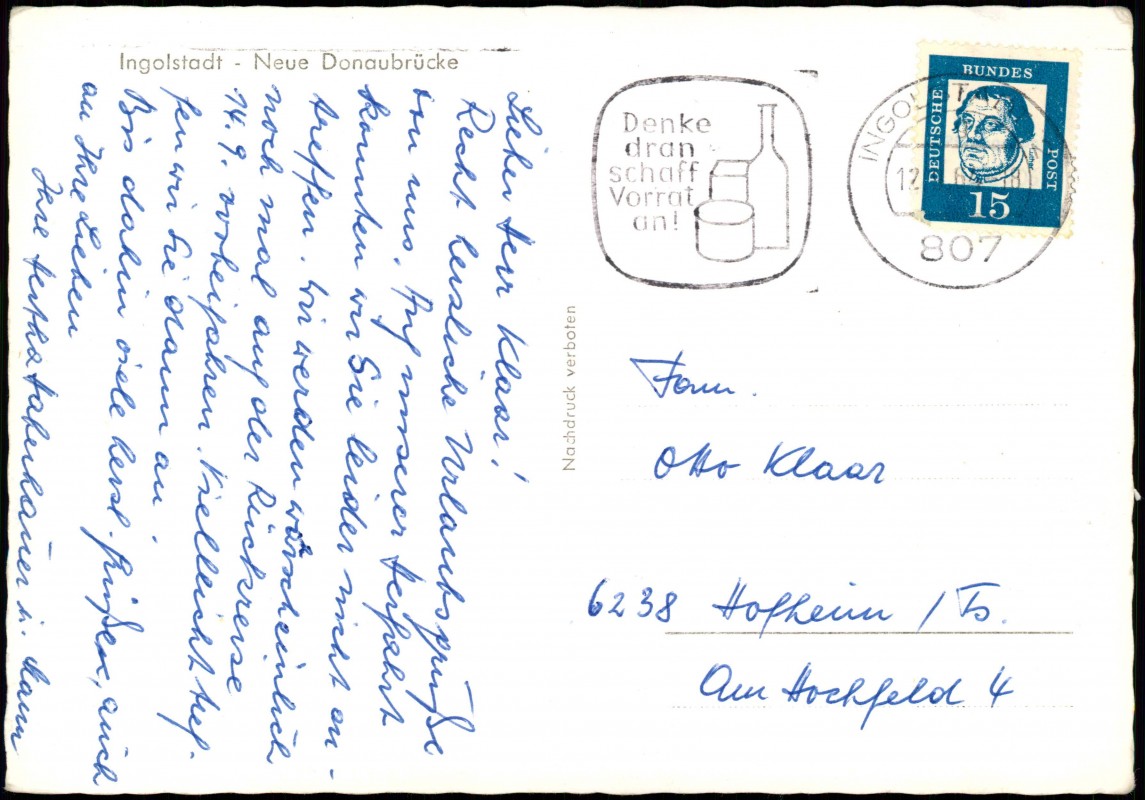 Ingolstadt - Neue Donaubrücke
Lieber Herr Klaar!
Recht herzliche Urlaubsgrüße
von uns. Auf unserer Herfahrt
konnten wir Sie leider nicht an-
treffen. Wir werden wahrscheinlich
noch mal auf der Rückreise
14.9. vorbeifahren. Vielleicht tref-
fen wir Sie dann an.
Bis dahin viele herzl. Grüßen, auch
an Ihre Lieben
Ihre Hertha u. Mann
Nachdruck verboten
Denke
dran
schaff
Vorrat
an!
INGOLSTADT
12.
807
DEUTSCHE
BUNDES
POST
15
Fam.
Otto Klaar
6238 Hofheim / Ts.
Am Hochfeld 4